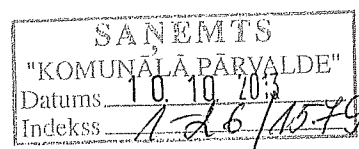 SAŅEMTS
"KOMUNĀLĀ PĀRVALDE"
Datums 10. 10. 2013
Indekss 1-26/1579